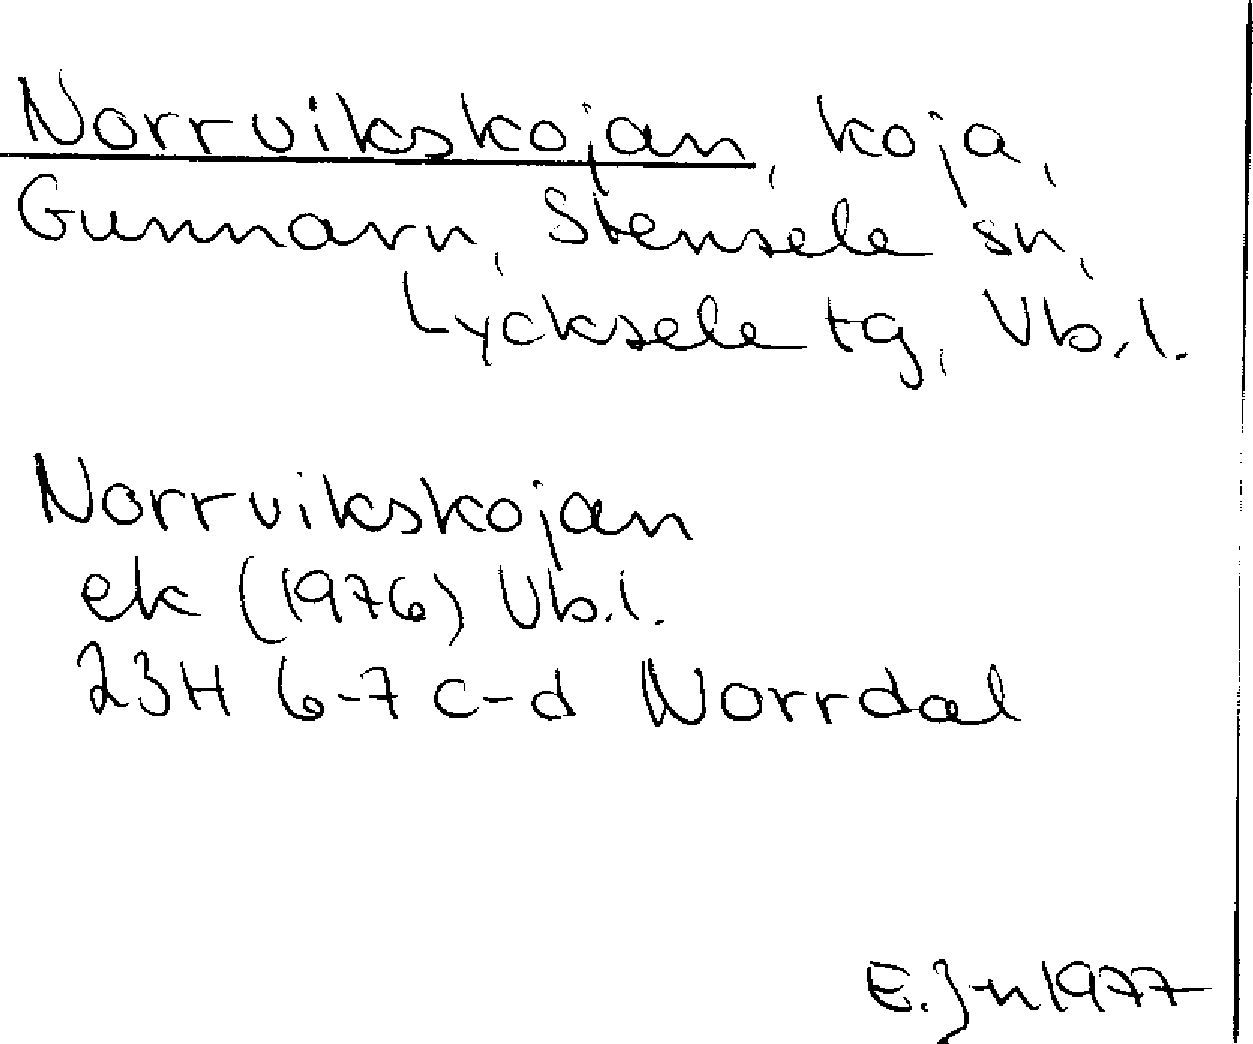 Norrvikskojan, koja,
Gunnarn, Stensele sn,
Lycksele tg, Vb.l.
Norrvikskojan
ek (1976) Vb.l.
23H 6-7 c-d Norrdal
E. J-n 1977